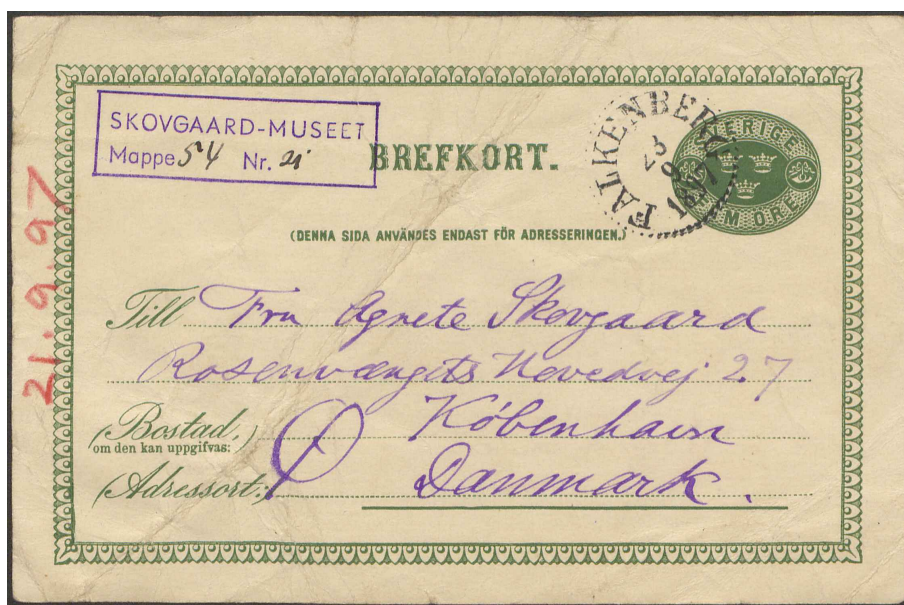 SKOVGAARD-MUSEET
Mappe 54 Nr. 21
BREFKORT.
FALKENBERG
23
9
1897
SVERIGE
FEM ÖRE
(DENNA SIDA ANVÄNDES ENDAST FÖR ADRESSERINGEN.)
Till Fru Agnete Skovgaard
Rosenvængets Hovedvej 27
(Bostad,
om den kan uppgifvas:)
Ø København
(Adressort:) Danmark.
21.9.97